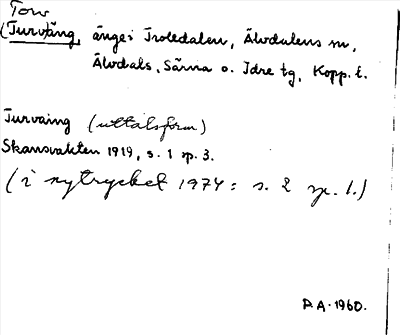 Torv
(Turväng, änge i Troledalen, Älvdalens sn,
Älvdals, Särna o. Idre tg, Kopp. l.
Turväing (uttalsform)
Skansvakten 1919, s. 1 sp. 3.
(i nytrycket 1974: s. 2 sp. 1.)
P.A. 1960.